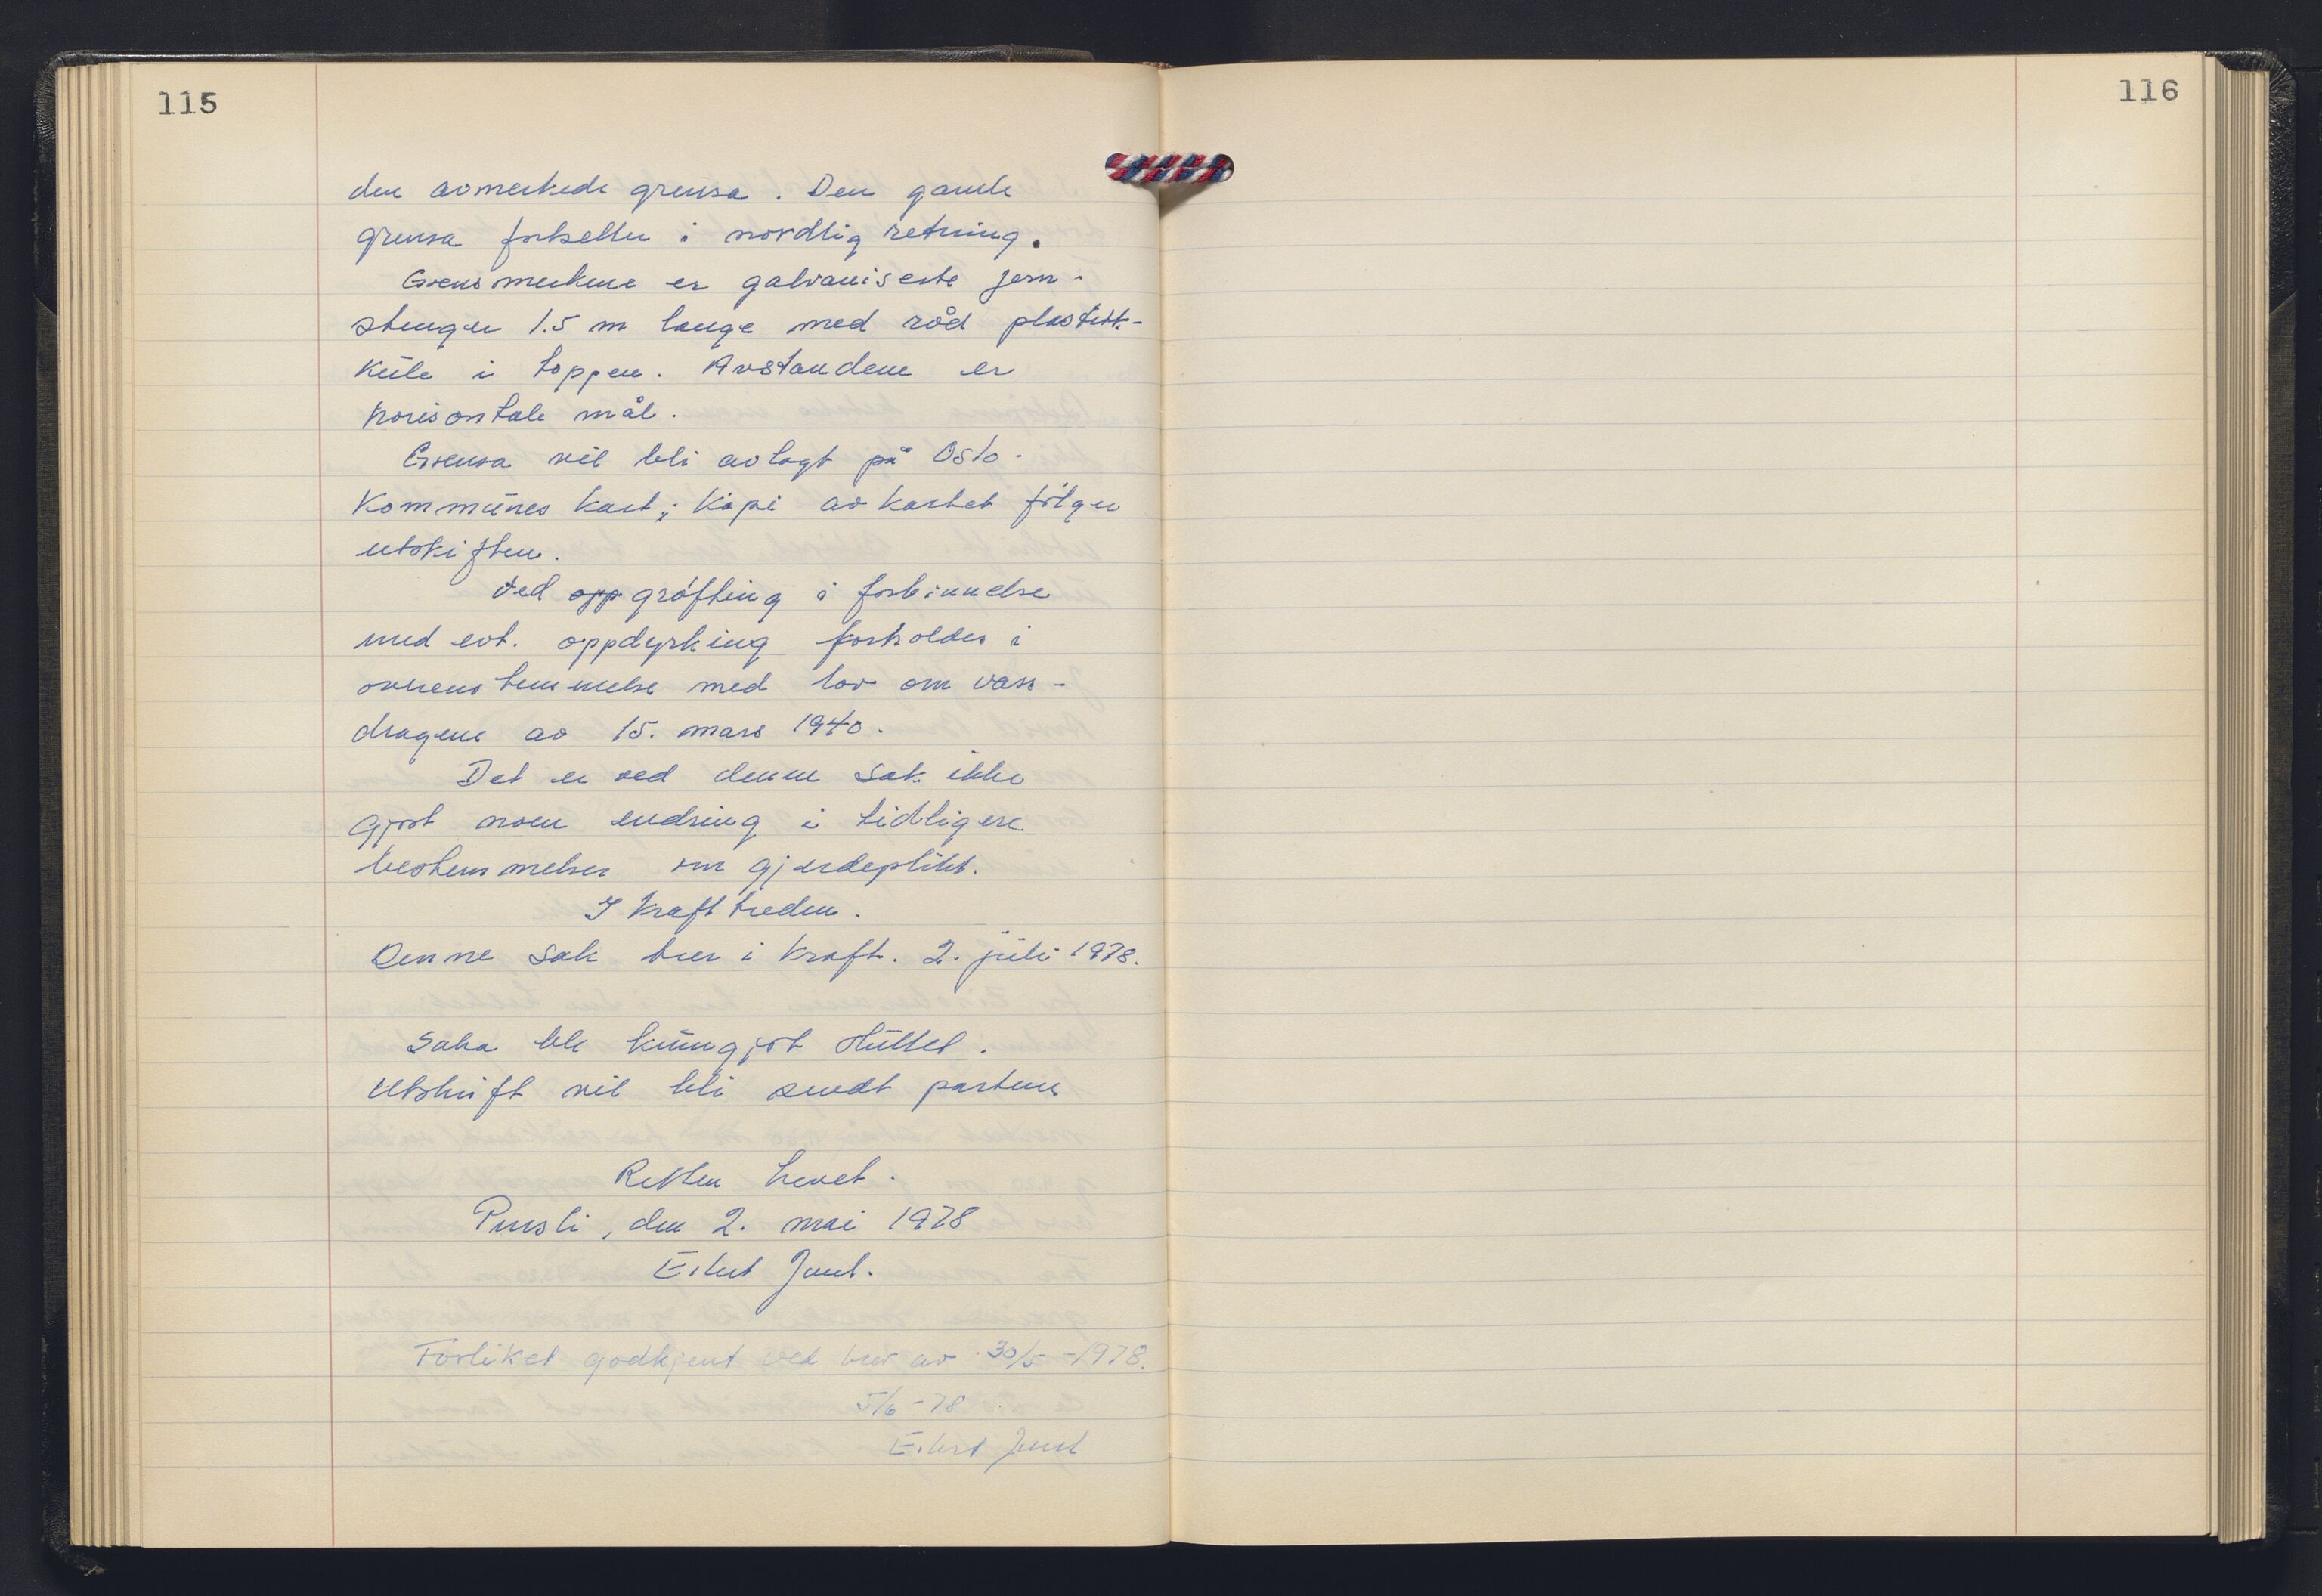 115
116
den avmerkede grensa. Den gamle
grensa fortsetter i nordlig retning.
Grensmerkene er galvaniserte jern-
stenger 1.5 m lange med rød plastikk-
kule i toppen. Avstandene er
horisontale mål.
Grensa vil bli avlagt på Oslo
Kommunes kart; Kopi av kartet følger
utskiften.
Ved opp grøfting i forbinnelse
med evt. oppdyrking forholdes i
overenstemmelse med lov om vass-
dragene av 15. mars 1940.
Det er ved denne sak ikke
gjort noen endring i tidligere
bestemmelser om gjerdeplikt.
I kraft treden.
Denne sak trer i kraft. 2. juli 1978.
Saka ble kunngjort sluttet.
Utskrift vil bli sendt partene
Retten hevet.
den 2. mai 1978
Eilert Juul.
Forliket godkjent ved brev av 30/5 - 1978.
5/6 - 78
Eilert Juul